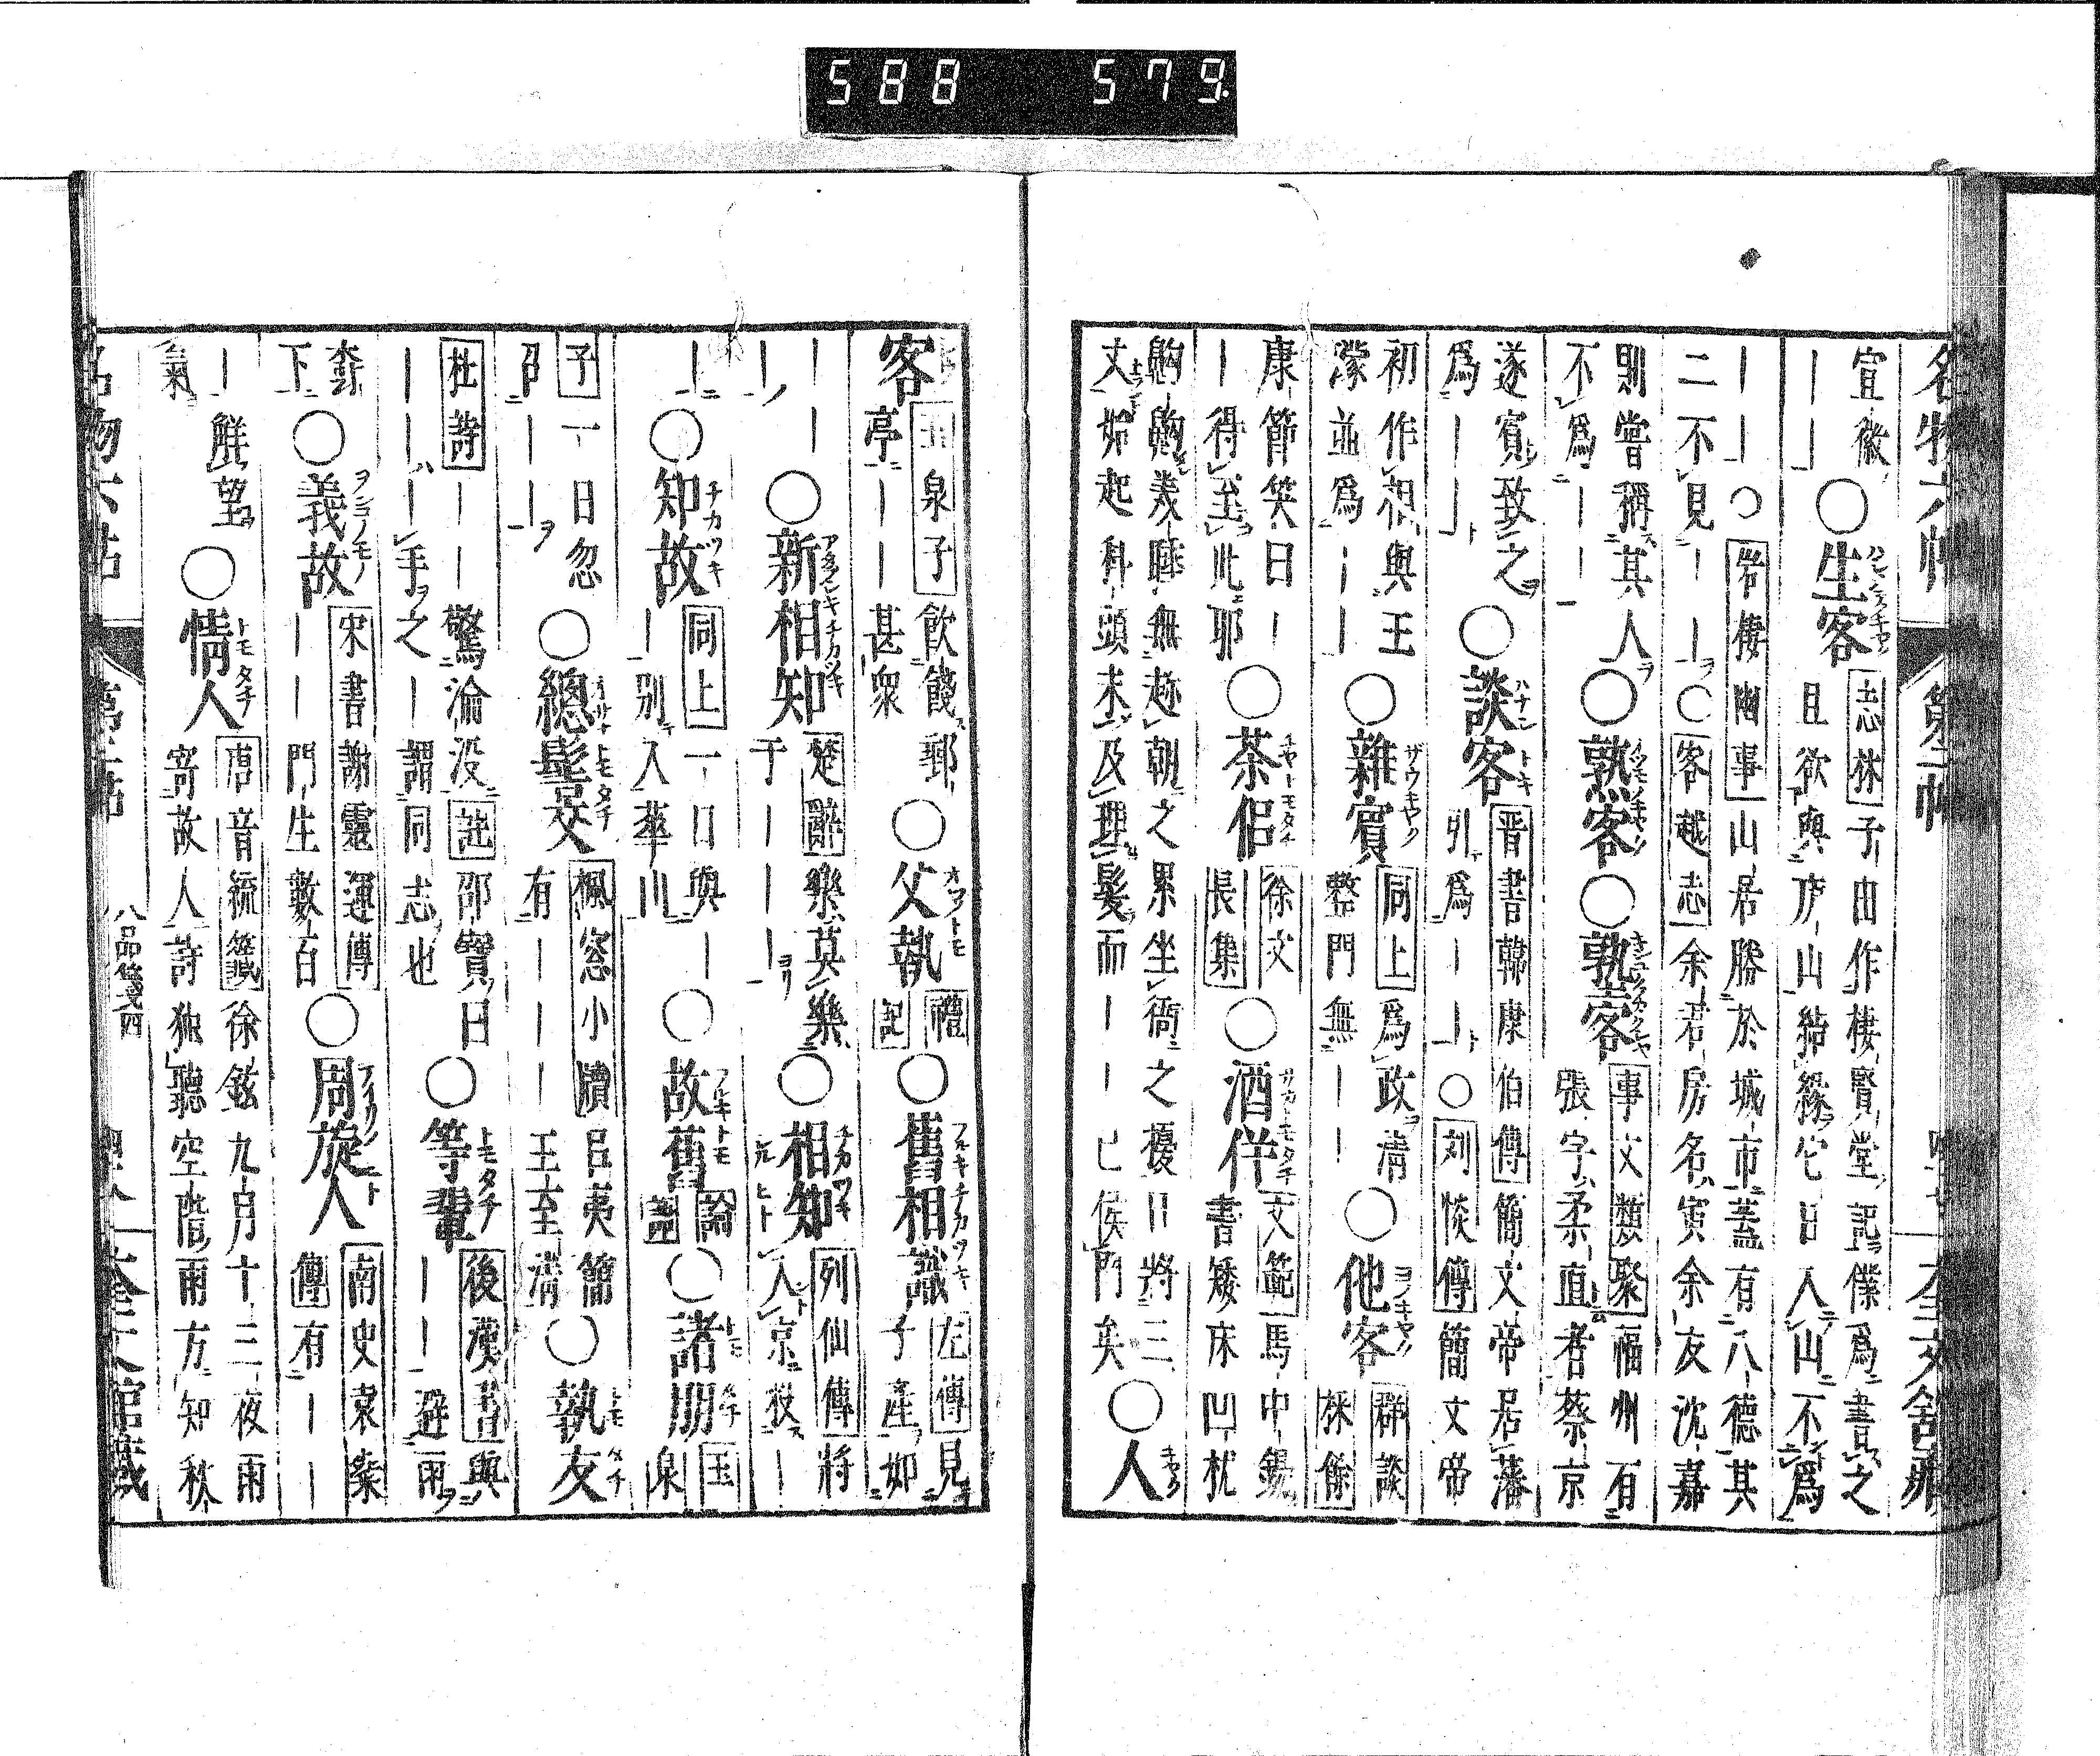 588 579.
宜徽
｜｜○生客 志林 子由作棲賢堂記僕爲書之
且欲與廬山結緣它日入山不爲
｜｜○岩棲幽事 山居勝於城市蓋有八德其
二不見｜｜○客越志 余君房名寅余友沈嘉
則嘗稱其人○熟客○孰客 事文類聚 福州有
不爲｜｜張字柔直者蔡京
遂賓致之○談客 晋書韓康伯傳 簡文帝居藩
爲｜｜引爲｜｜○刘惔傳 簡文帝
初作相與王○雜賓 同上 爲政清○他客 群談
濛並爲｜｜整門無｜｜採餘
康節笑曰｜○茶侶 徐文○酒伴 文範 馬中錫
｜得至此耶 長集 書矮床凹枕
齁齁義睡無趂朝之累坐衙之擾日將三
丈始起科頭未及理髮而｜｜已候門矣○人
客 玉泉子 飲餞郵○父執 禮○舊相識 左傳 見
亭｜｜甚衆 記 子產如
｜｜○新相知 楚辭 樂莫樂○相知 列仙傳 將
｜于｜｜｜入京投｜
｜○知故 同上 一日與｜○故舊 論○諸朋 玉
｜別入華川 語 泉
子 一日忽○總髻交 楓窓小牘 呂夷簡○執友
邵｜｜有｜｜｜王至清
杜詩 ｜｜驚淪没 註 邵寶曰○等輩 後漢書 與
｜｜｜手之｜謂同志也｜｜避雨
樹○義故 宋書謝靈運傳○周旋人 南史袁粲
下｜｜門生數百 傳 有｜｜
｜鮮望○情人 唐音統籤 徐鉉九月十三夜雨
氣 寄故人詩独聽空階雨方知秋
八品箋四